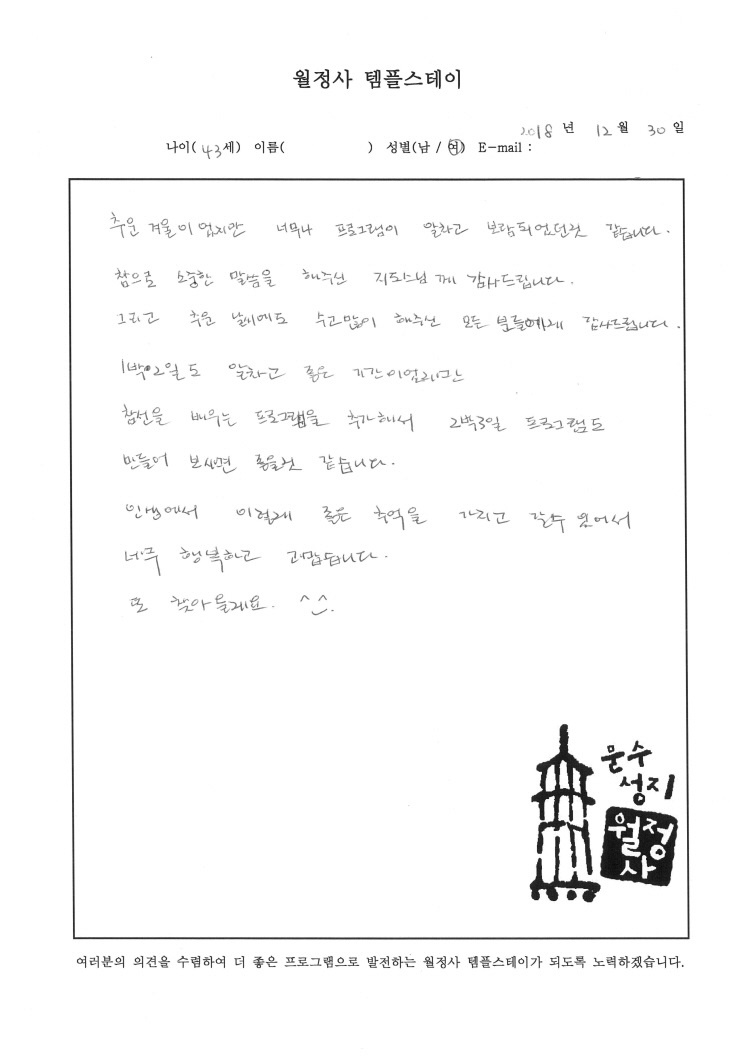 월정사 템플스테이
2018 년 12 월 30 일
나이( 43세) 이름( ) 성별(남 / 여) E-mail :
추운 겨울이 였지만 너무나 프로그램이 알차고 보람되었던것 같습니다.
참으로 소중한 말씀을 해주신 지도스님께 감사드립니다.
그리고 추운 날씨에도 수고많이 해주신 모든 분들에게 감사드립니다.
1박2일도 알차고 좋은 기간이었지만
참선을 배우는 프로그램을 추가해서 2박3일 프로그램도
만들어 보시면 좋을것 같습니다.
인생에서 이렇게 좋은 추억을 가지고 갈수 있어서
너무 행복하고 고맙습니다.
또 찾아올게요. ^^.
문수
성지
월정
사
여러분의 의견을 수렴하여 더 좋은 프로그램으로 발전하는 월정사 템플스테이가 되도록 노력하겠습니다.